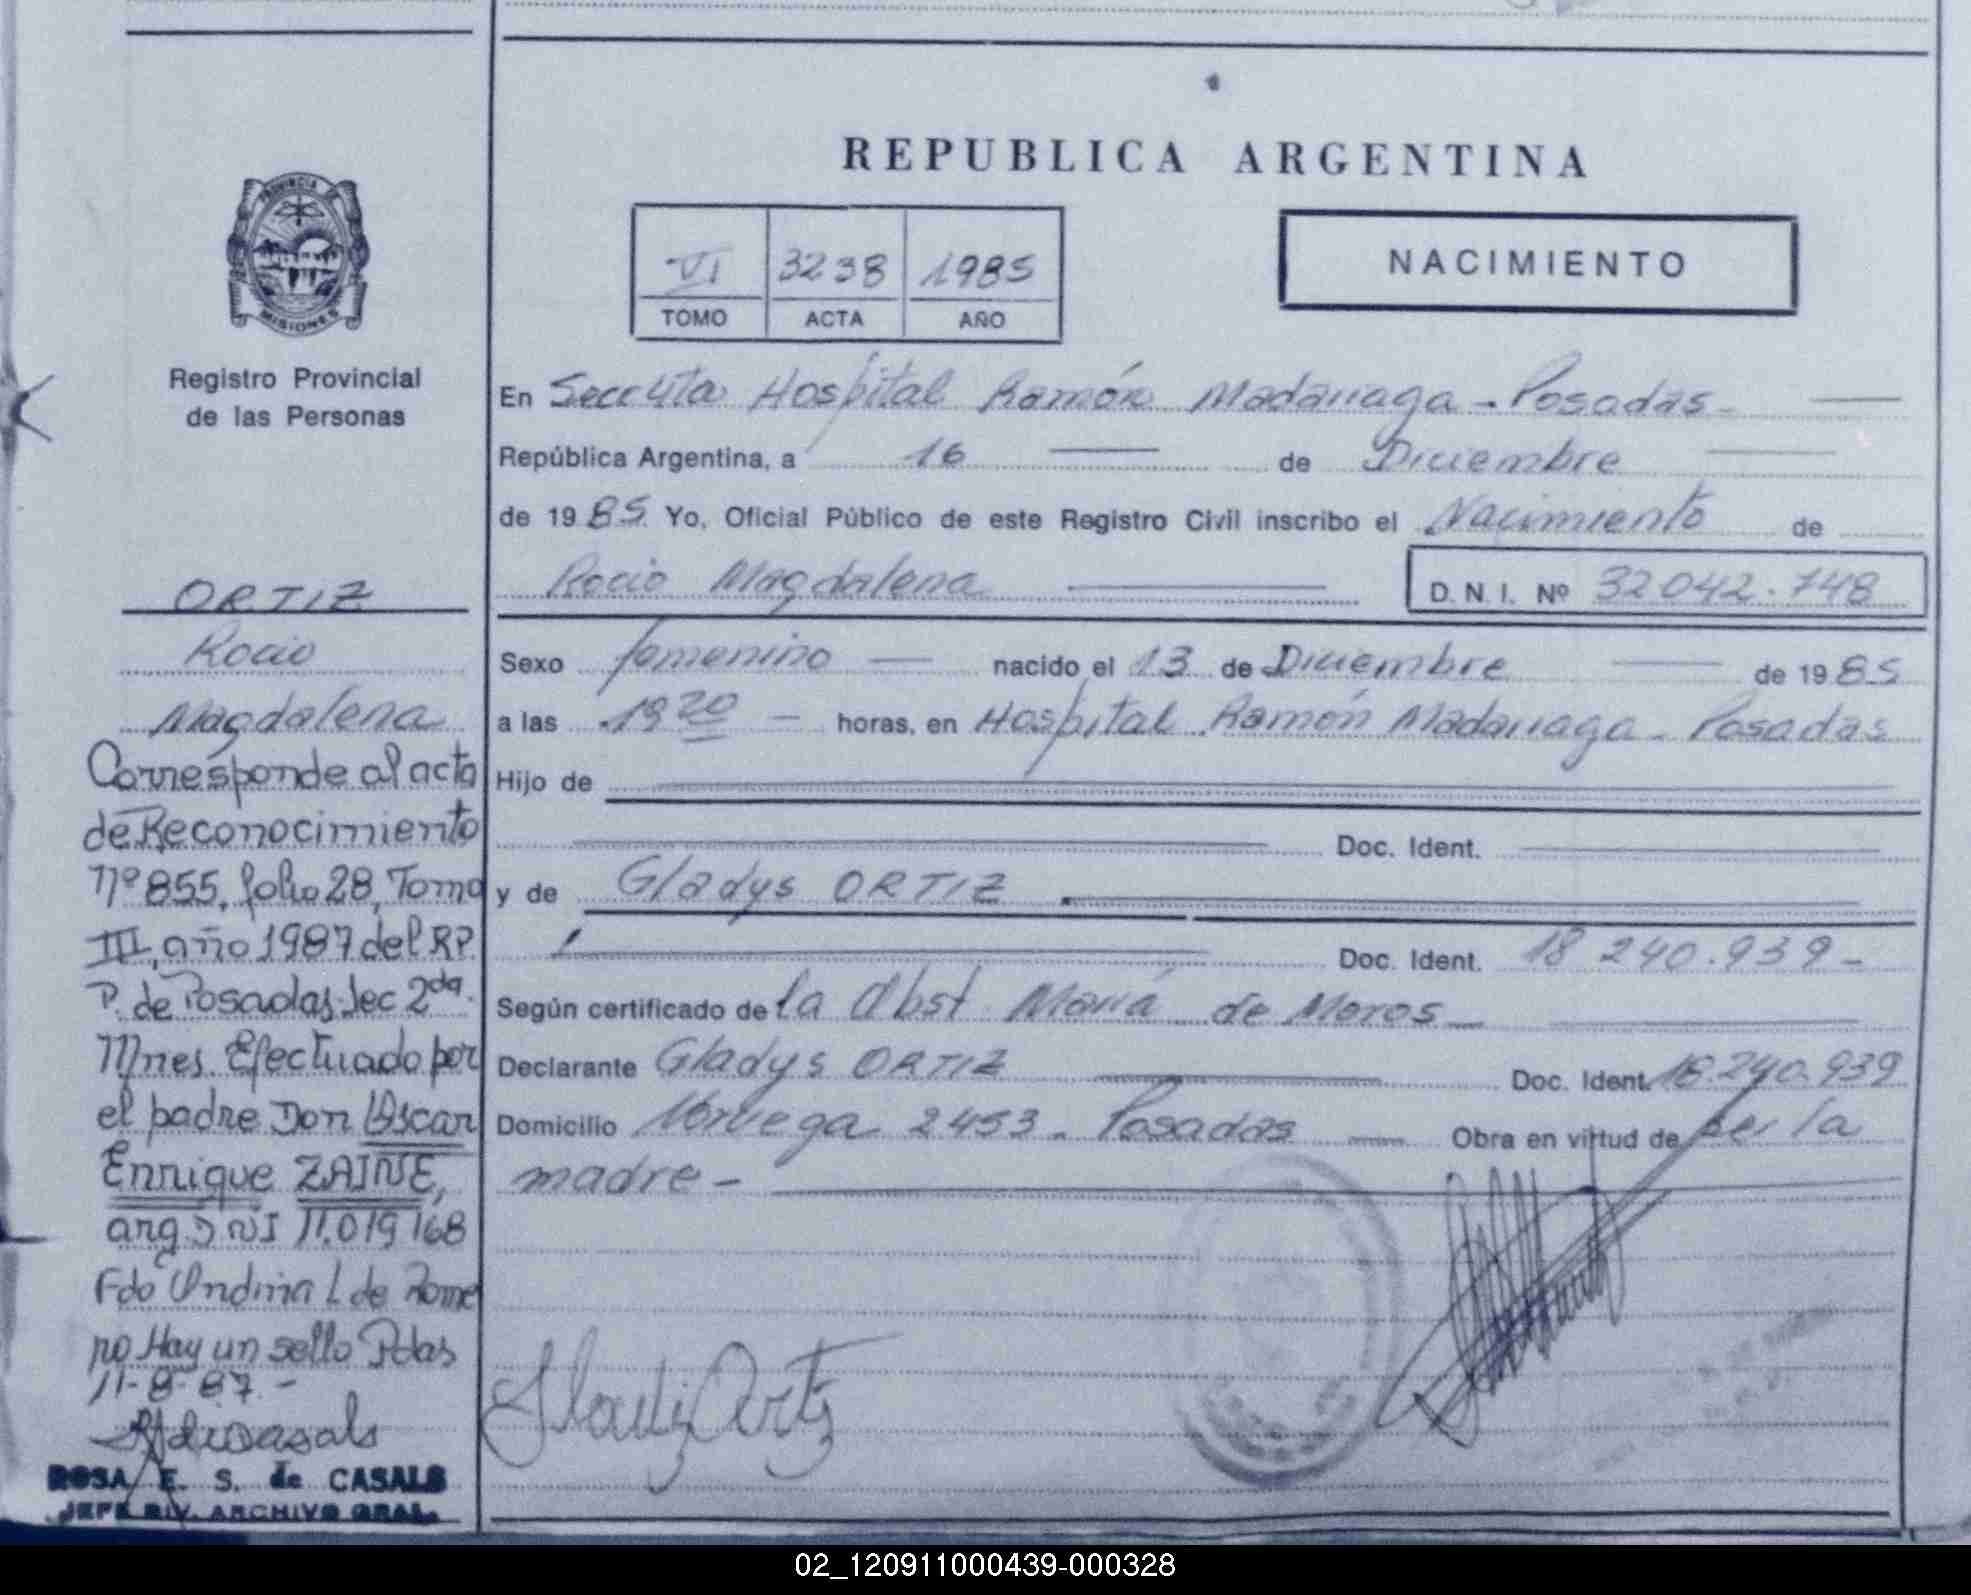 REPUBLICA ARGENTINA
VI 3238 1985
TOMO ACTA AÑO
NACIMIENTO
PROVINCIA DE
MISIONES
Registro Provincial
de las Personas
ORTIZ
Rocio
Magdalena
Corresponde al acta
de Reconocimiento
Nº 855, folio 28, Tomo
III, año 1987 del R.P.
P. de Posadas Sec 2da.
Mnes. Efectuado por
el padre Don Oscar
Enrique ZAINE,
arg. DNI 11.019 168
Fdo Undina L de Rome
ro Hay un sello Pdas
11-8-87.-
ROSA E. S. de CASALS
JEFE DIV. ARCHIVO GRAL.
En Secc 4ta Hospital Ramón Madariaga - Posadas
República Argentina, a 16 de Diciembre
de 1985 Yo, Oficial Público de este Registro Civil inscribo el Nacimiento de
Rocio Magdalena D.N.I. Nº 32042.748
Sexo femenino nacido el 13 de Diciembre de 1985
a las 19 20 horas, en Hospital Ramón Madariaga - Posadas
Hijo de
Doc. Ident.
y de Gladys ORTIZ
Doc. Ident. 18 240.939-
Según certificado de la Obst. María de Moros
Declarante Gladys ORTIZ Doc. Ident. 18.240.939
Domicilio Noruega 2453 - Posadas Obra en virtud de ser la
madre-
Gladys Ortiz
02_120911000439-000328